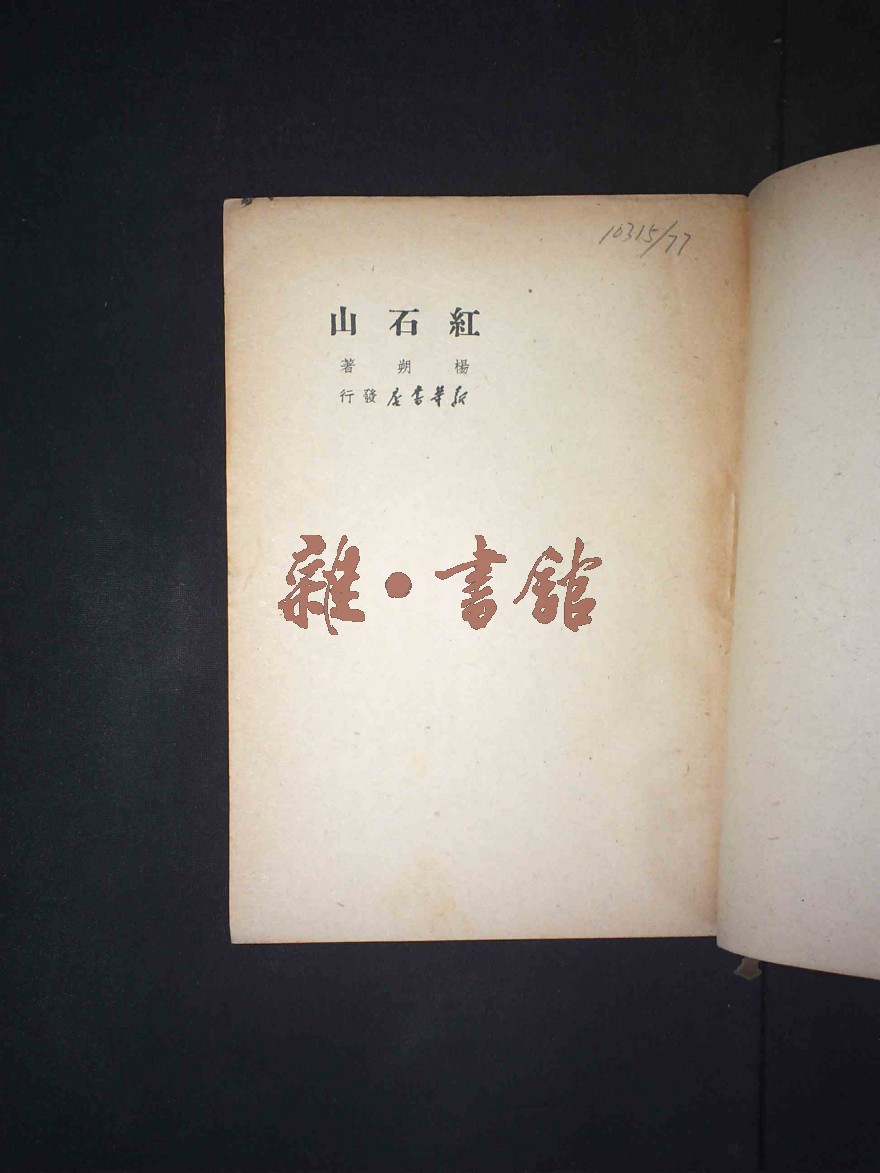 10315/77
紅石山
楊朔著
新華書店發行
雜·書館